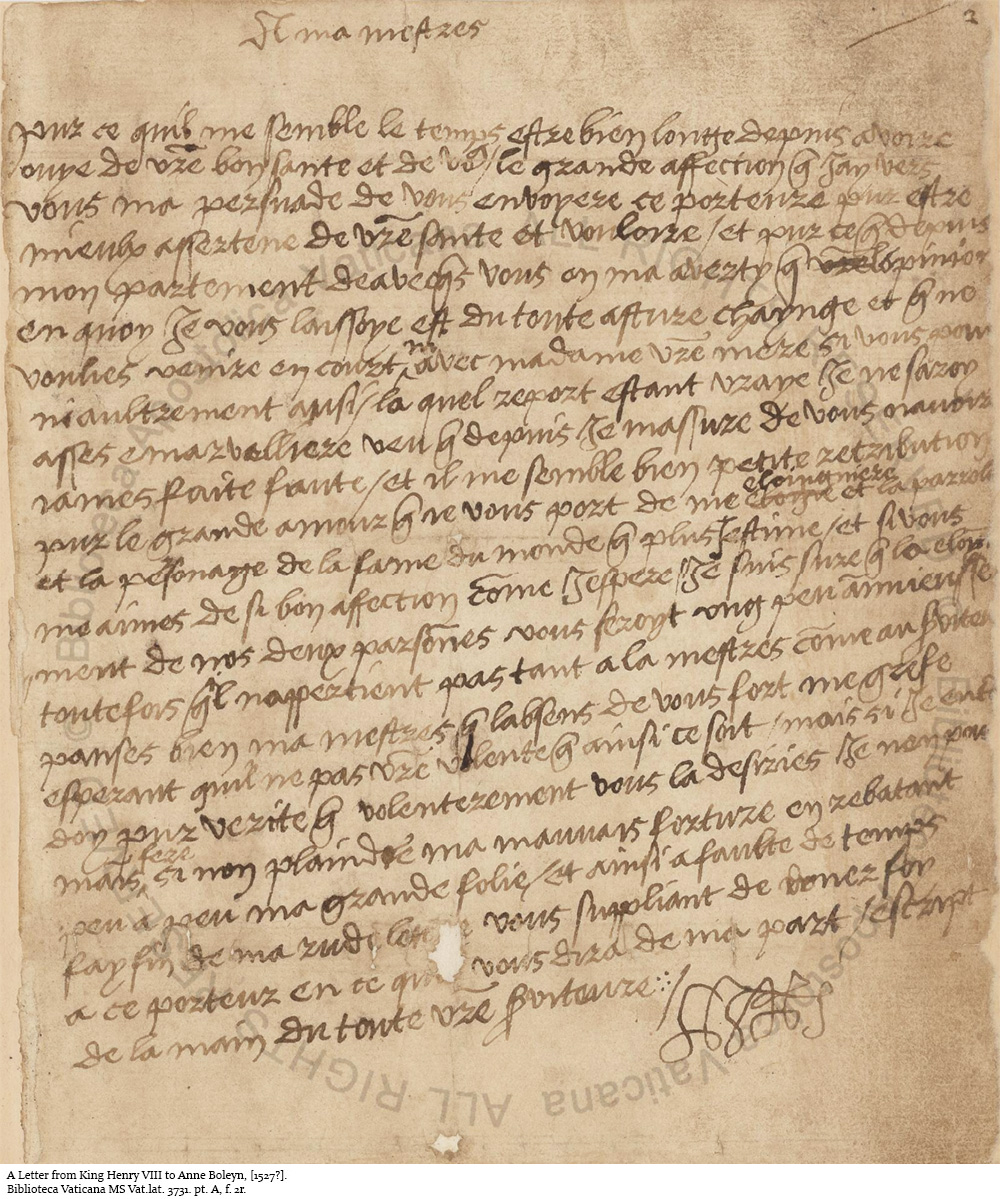 A ma mestres
2
pur ce quil me semble le temps estre bien longe depuis avoire
ouye de vre bon sante et de vo9 / le grande affection q Jay vers
vous ma persuade de vous envoyere ce porteure pur estre
mieulx assertene de vre sante et vouloire / et pur ce q depuis
mon partement deavecqs vous on ma averty q vre opinion
en quoy Je vous laissoye est du toute asture chaynge et q ne
voulies venire en court ni avec madame vre mere si vous pou
ni aultrement ausi / la quel report estant vraye Je ne saroy
asses emarvalliere veu q depuis Je massure de vous navoir
iames faite faute / et il me semble bien petite retribution
pur le grande amour q ie vous port de me eloingniere et la parrole
et la personage de la fame du monde q plus Jestime / et si vous
me aimes de si bon affection come Jespere / Je suis sure q la eloin
ment de nos deux parsones vous seroyt ung peu annieusse
toutefois ql nappertient pas tant a la mestres come au srviteu
panses bien ma mestres q labsens de vous fort me grefe
esperant quil ne pas vre volente q ainsi ce soit / mais si Je ent
doy pur verite q volenterement vous la desiries Je nen pou
mais fere si non plaindre ma mauvais fortune en rebatant
peu a peu ma grande folie / et ainsi a faulte de temps
fay fin de ma rude vous suppliant de doner foy
a ce porteur en ce vous dira de ma part / escript
de la main du toute vre srviteure
© Biblioteca Apostolica Vaticana ALL RIGHTS
A Letter from King Henry VIII to Anne Boleyn, [1527?].
Biblioteca Vaticana MS Vat.lat. 3731. pt. A, f. 2r.